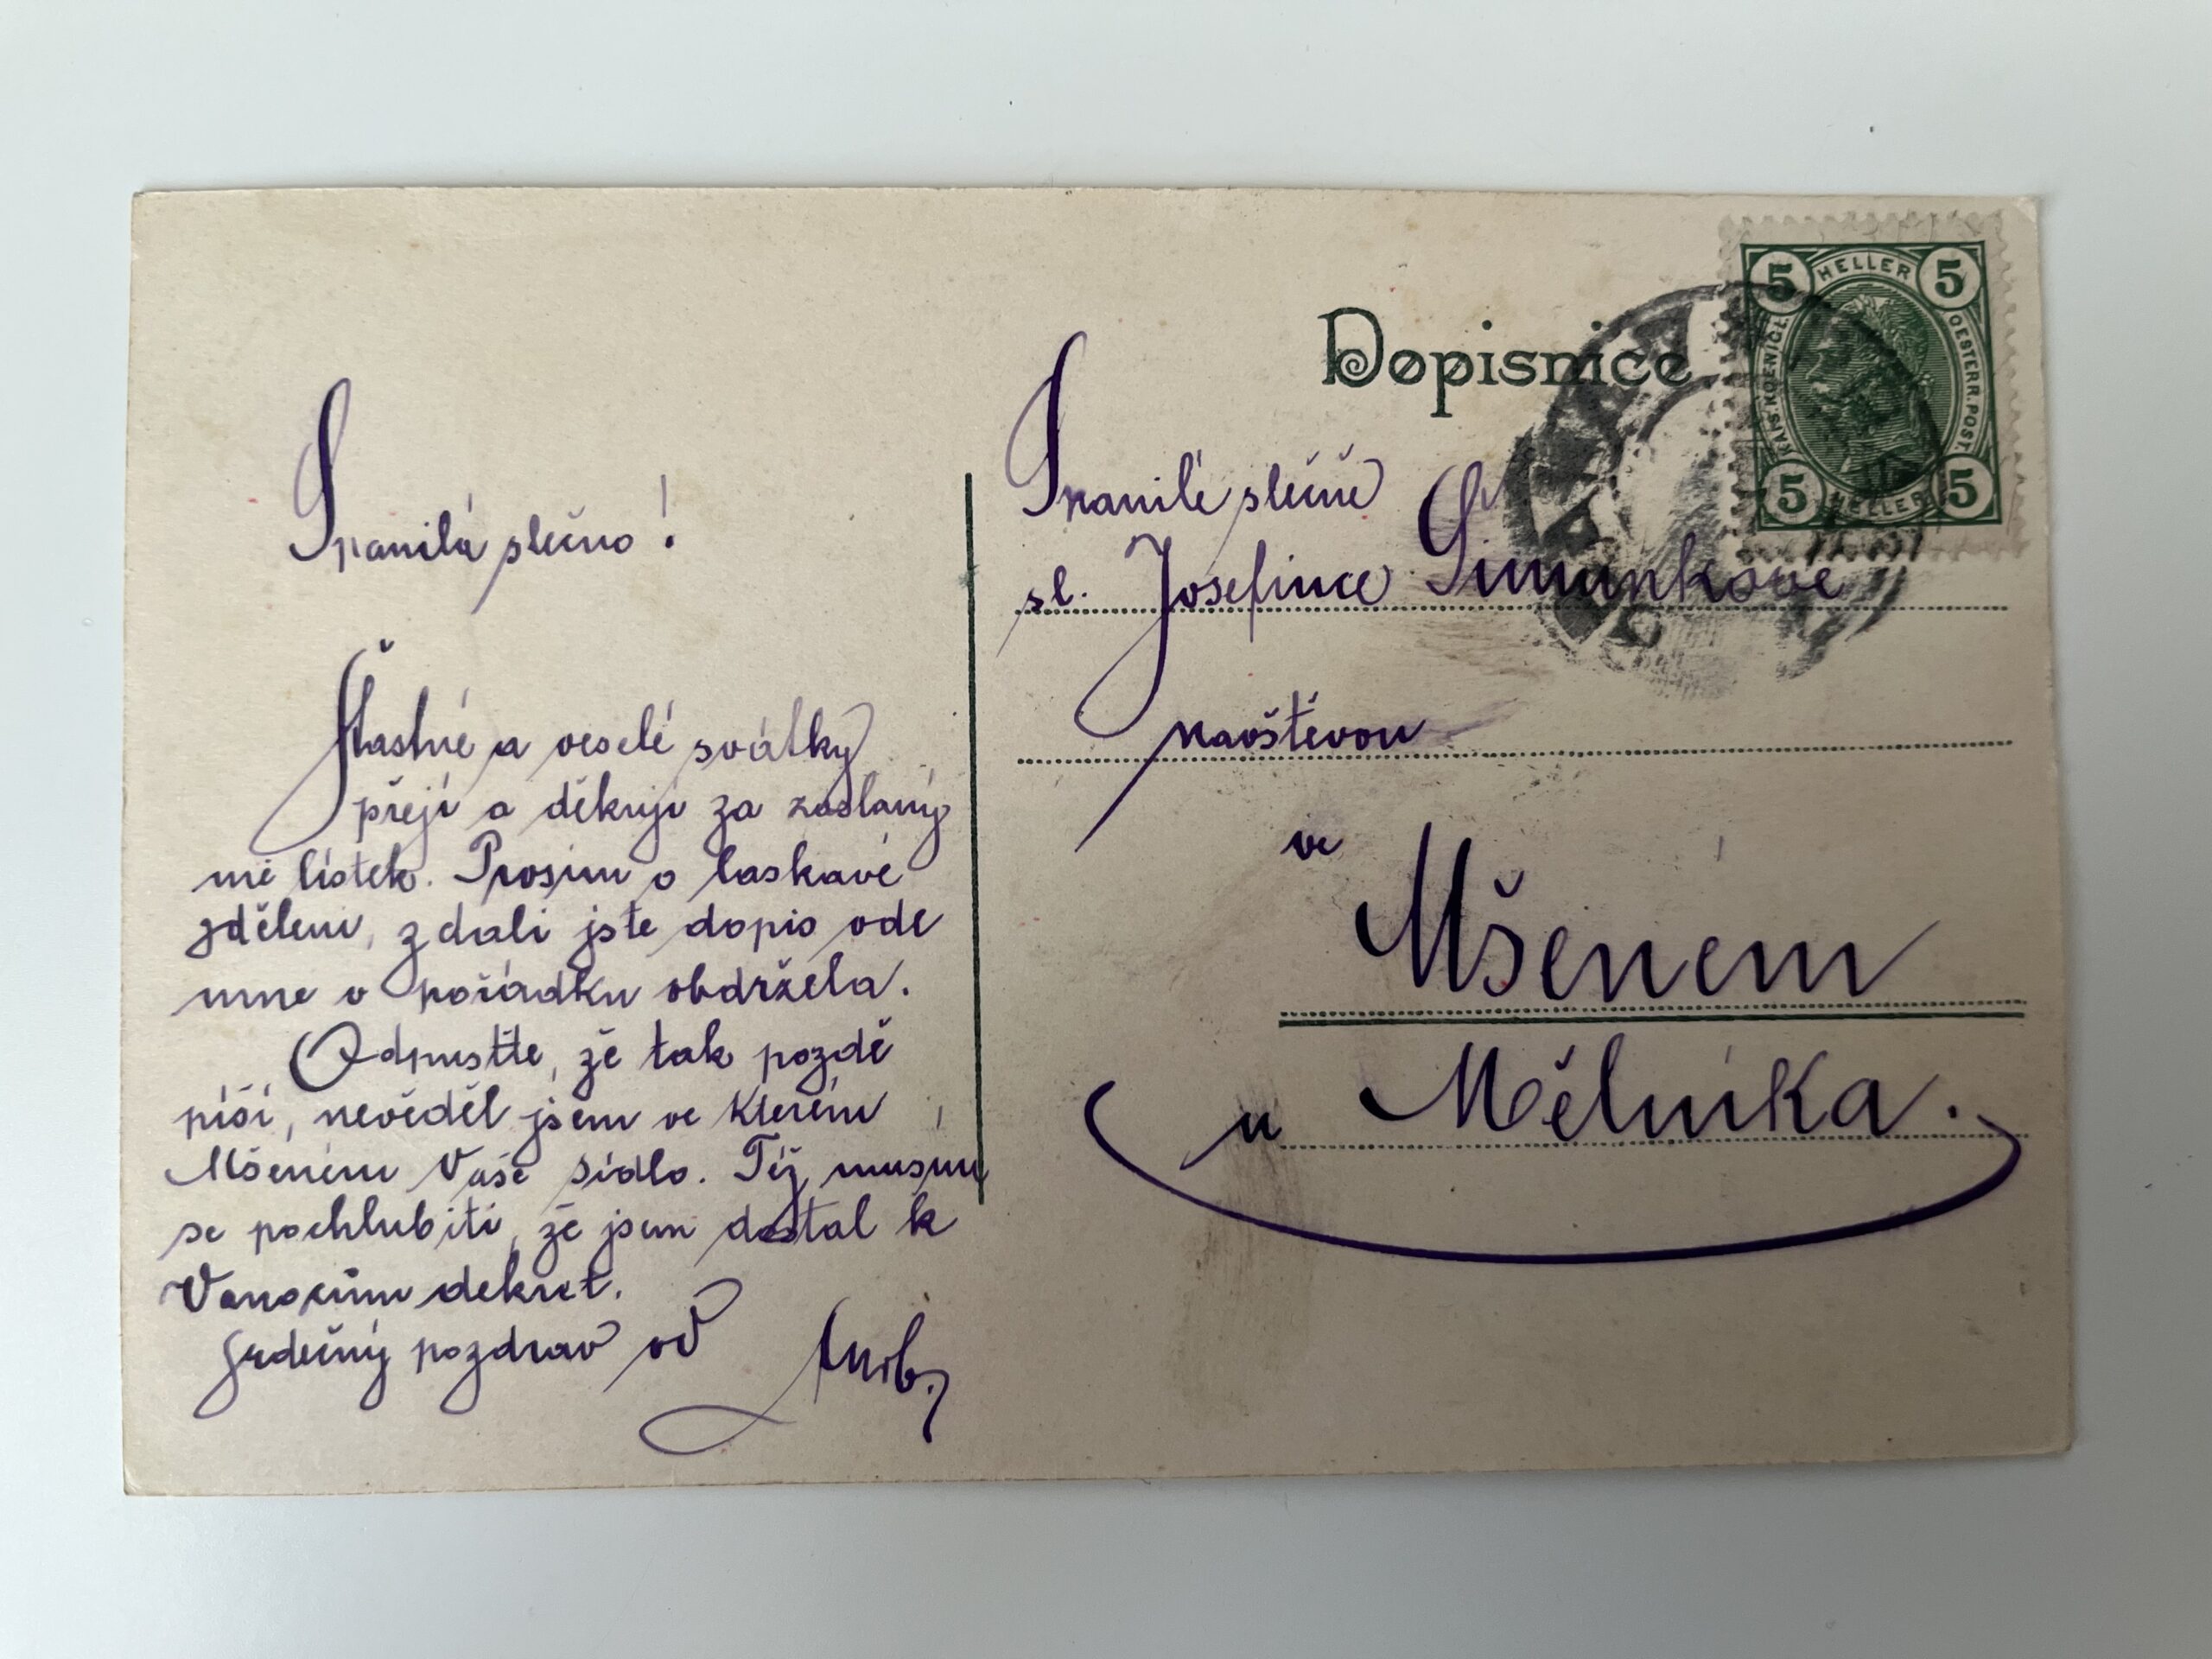 Spanilá slečno!
Šťastné a veselé svátky
přeji a děkuji za zaslaný
mě lístek. Prosím o laskavé
zdělení, zdali jste dopis ode
mne v pořádku obdržela.
Odpusťte, že tak pozdě
píši, nevěděl jsem ve kterém
Mšeném Vaše sídlo. Též musím
se pochlubiti, že jsem dostal k
Vánocům dekret.
Srdečný pozdrav od
Dopisnice
Spanilé slečně
sl. Josefince Šimůnkové
návštěvou
ve
Mšeném
u Mělníka.
5 HELLER 5
KAIS. KOENIGL.
OESTERR. POST.
5 HELLER 5